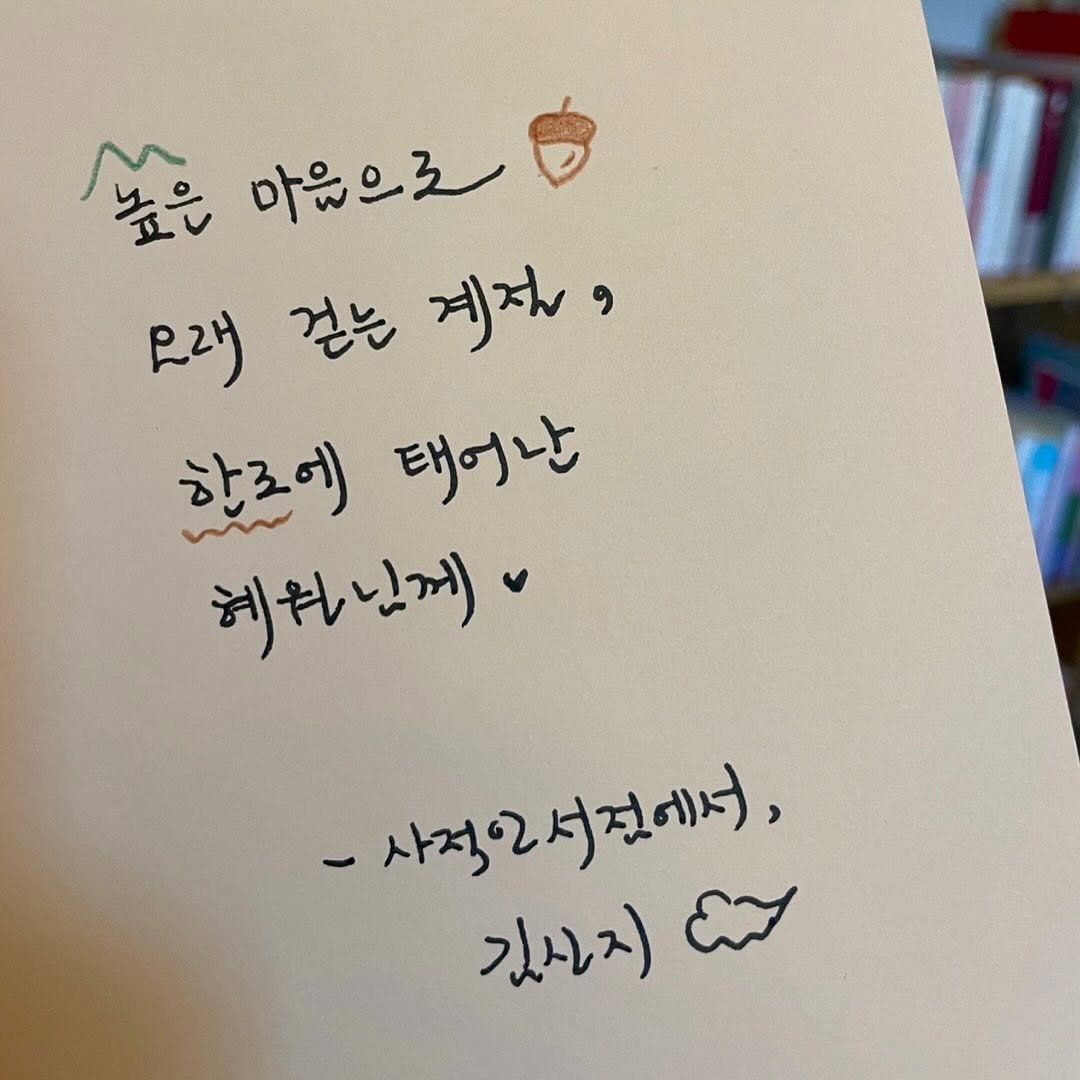 높은 마음으로
오래 걷는 계절,
한로에 태어난
혜원님께 ♥
- 사적인서점에서,
김산지